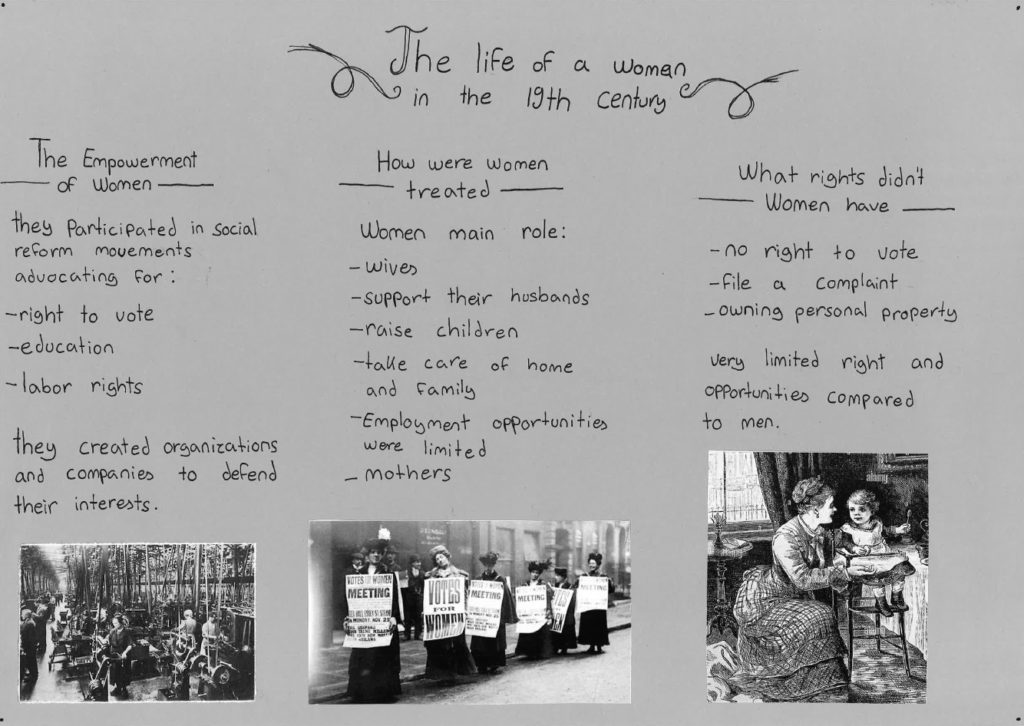 The life of a woman
in the 19th Century
The Empowerment
of Women
they Participated in social
reform movements
advocating for:
-right to vote
-education
-labor rights
they created organizations
and companies to defend
their interests.
How were women
treated
Women main role:
-wives
-support their husbands
-raise children
-take care of home
and family
-Employment opportunities
were limited
-mothers
What rights didn't
Women have
-no right to vote
-file a complaint
-owning personal property
very limited right and
opportunities compared
to men.
VOTES FOR WOMEN
MEETING
VOTES
FOR
WOMEN
MEETING
MEETING
alamy